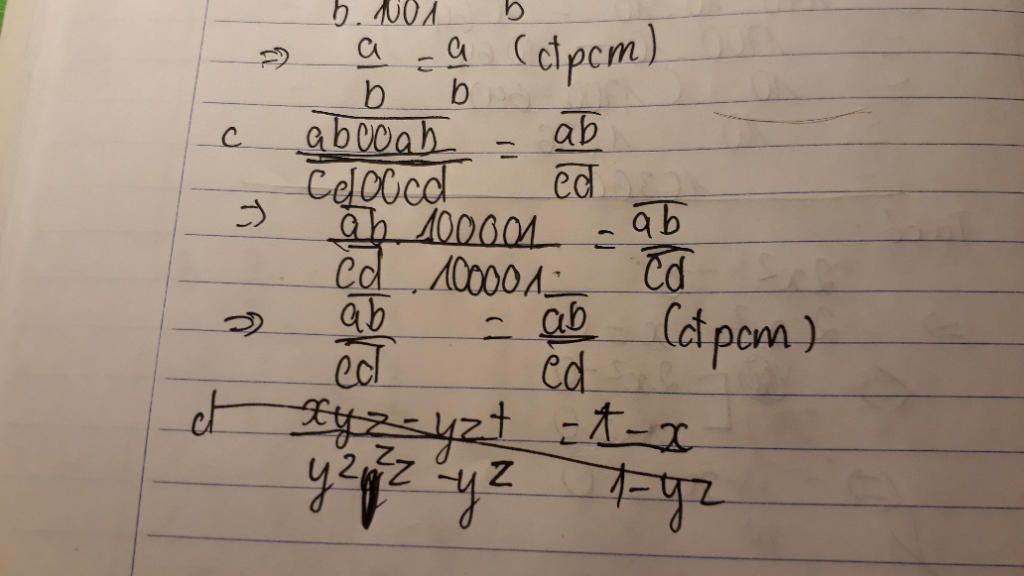 b.1001 b
⇒ a/b = a/b (đpcm)
c ab00ab/cd00cd = ab/cd
⇒ ab.100001/cd.100001 = ab/cd
⇒ ab/cd = ab/cd (đpcm)
d xyz-yzt = t-x
y²z² -yz 1-yz